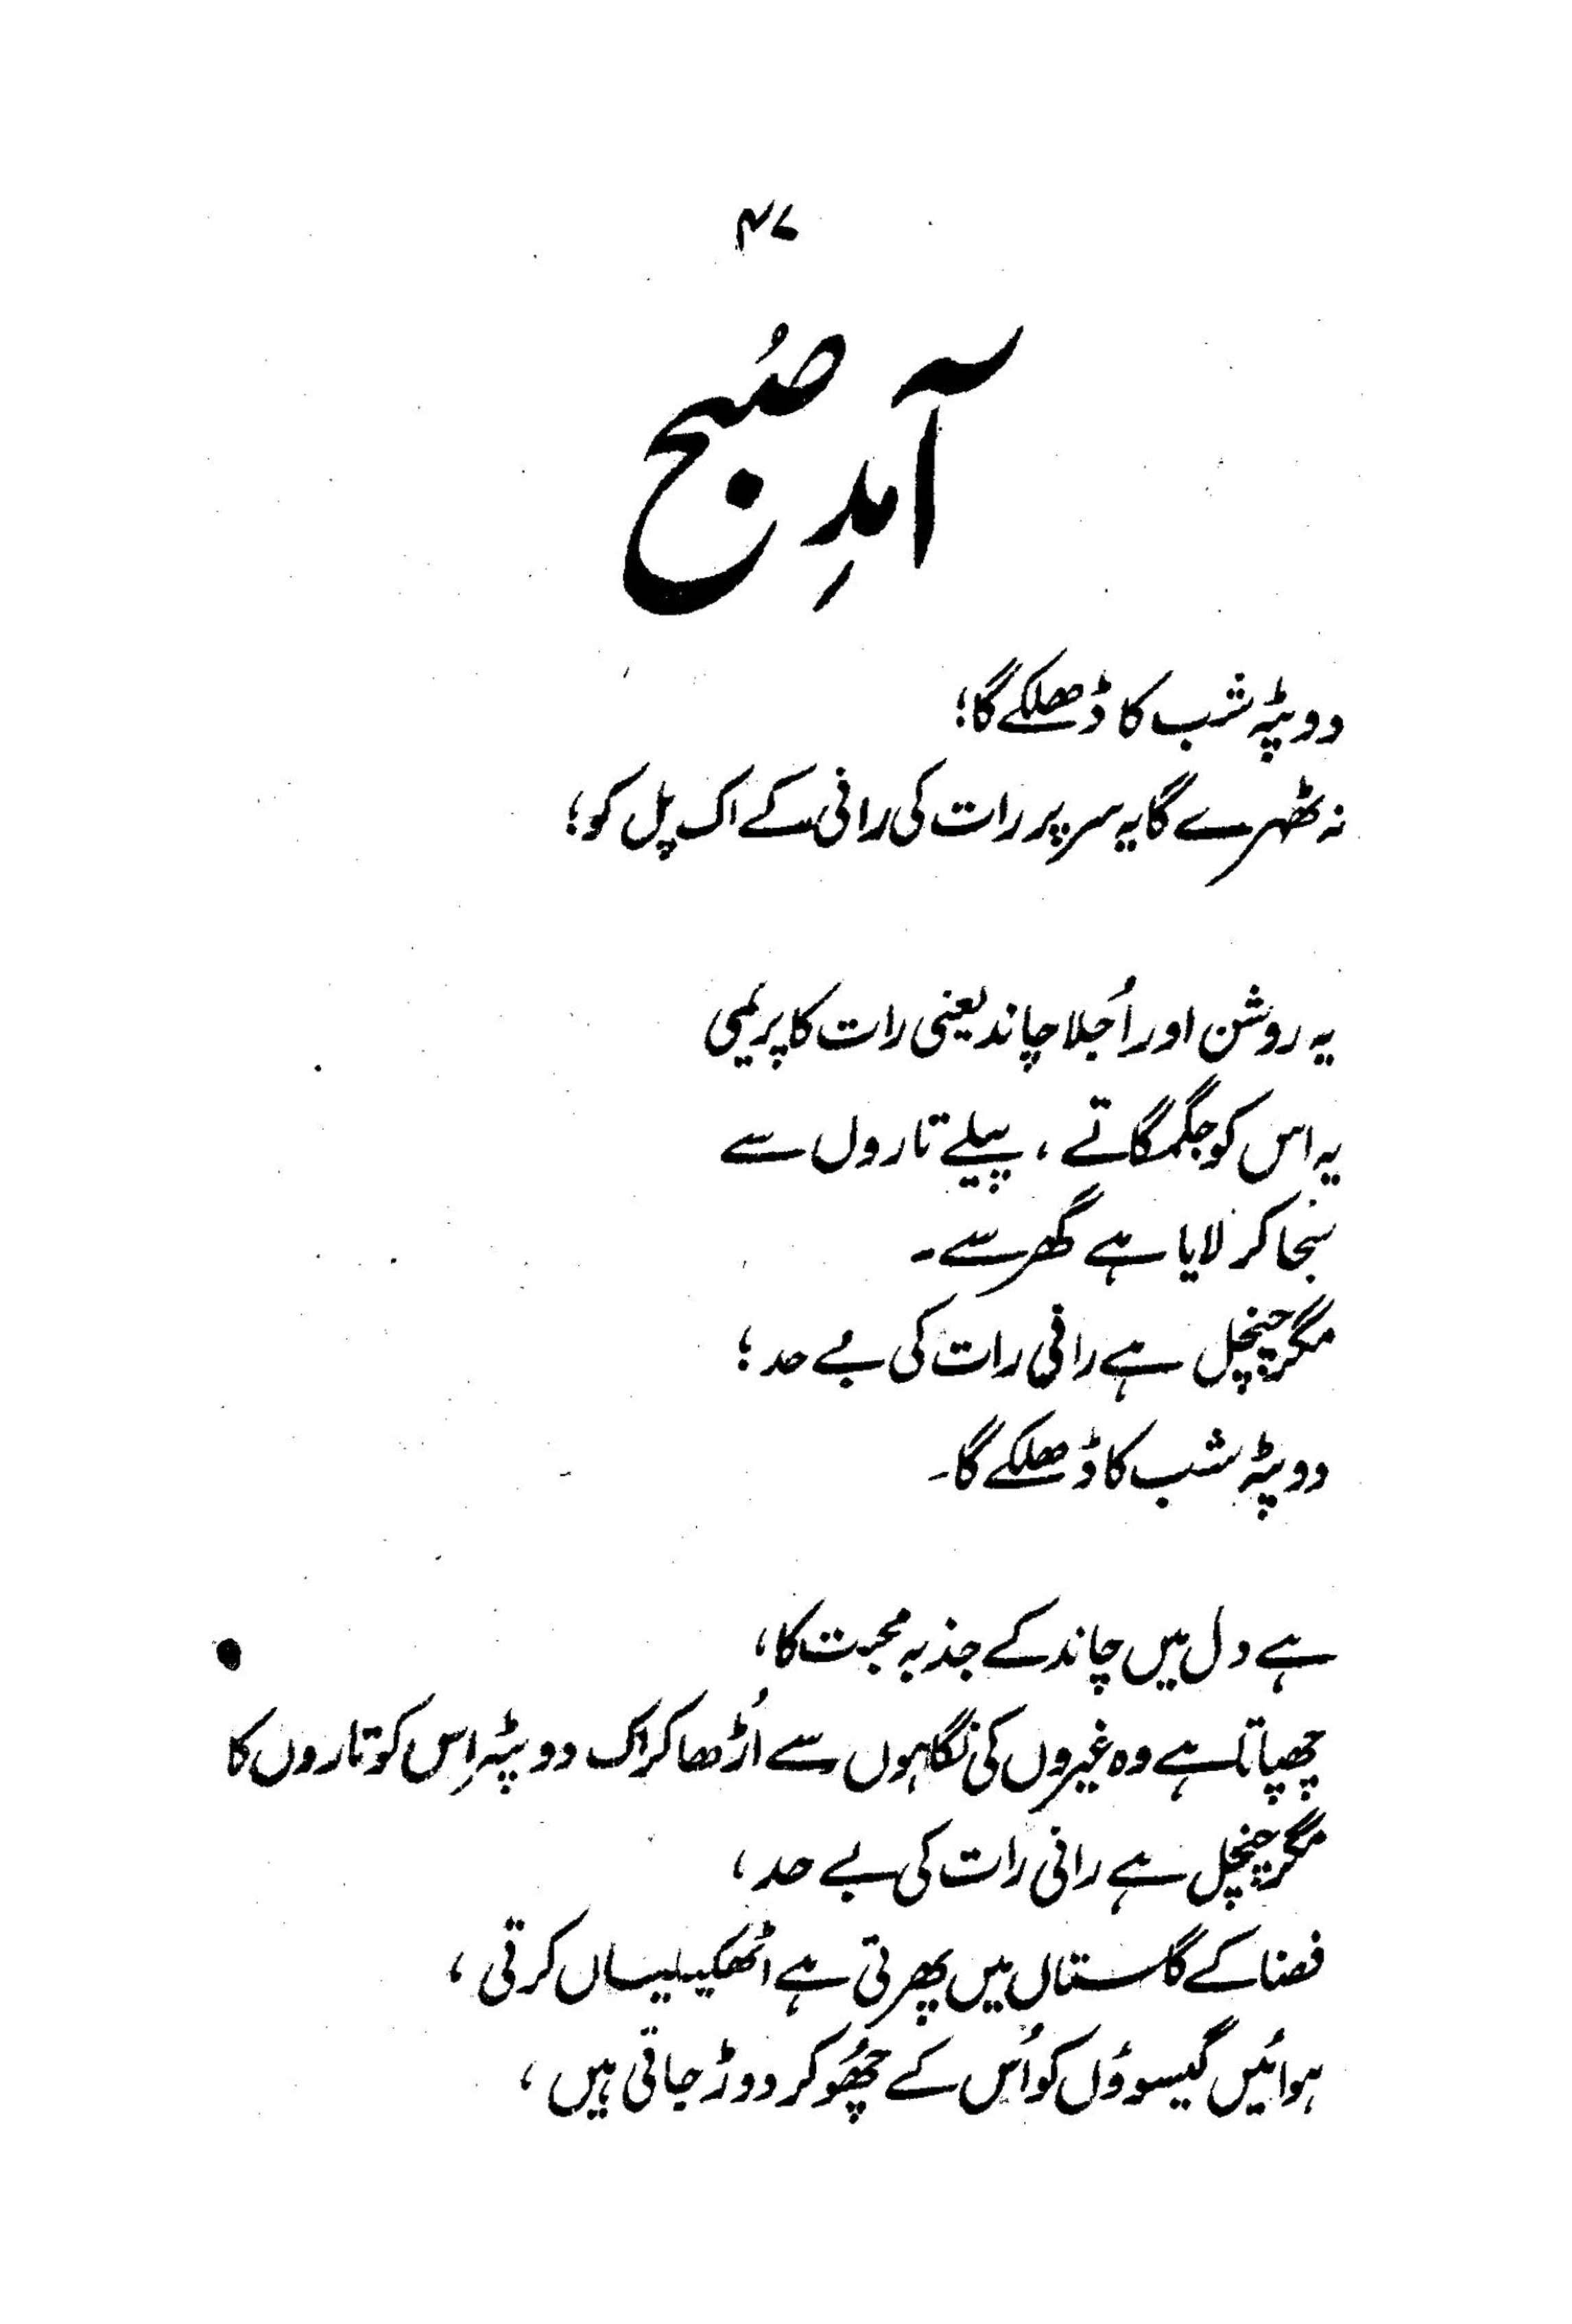 ۴۷
آمدِ صُبح
دوپٹہ شب کا ڈھلکے گا؛
نہ ٹھہرے گا یہ سر پر رات کی رانی کے اک پل کو؛
یہ روشن اور اُجلا چاند یعنی رات کا پریمی
یہ اس کو جگمگاتے، پیلے تاروں سے
سجا کر لایا ہے گھر سے۔
مگر چنچل ہے رانی رات کی بے حد؛
دوپٹہ شب کا ڈھلکے گا۔
ہے دل میں چاند کے جذبہ محبت کا،
چھپاتا ہے وہ غیروں کی نگاہوں سے اُڑھا کر اک دوپٹہ اِس کو تاروں کا
مگر چنچل ہے رانی رات کی بے حد،
فضا کے گلستاں میں پھرتی ہے اٹھکیلیاں کرتی،
ہوائیں گیسوؤں کو اُس کے چھُو کر دوڑ جاتی ہیں،